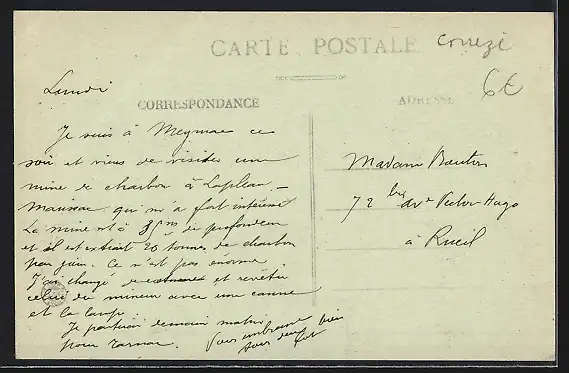 CARTE POSTALE
Correze
6€
Lundi
CORRESPONDANCE
ADRESSE
Je suis à Meymac ce
soir et viens de visiter une
mine de charbon à Lapleau -
Maussac qui m'a fort intéressé
La mine est à 85m de profondeur
et il est extrait 20 tonnes de charbon
par jour. Ce n'est pas énorme.
J'ai changé de costume et revêtu
celui du mineur avec une canne
et la lampe.
Je partirai demain matin
pour
Vous embrasse
tous deux bien
fort
Madame
72 bis Av. Victor Hugo
à Rueil